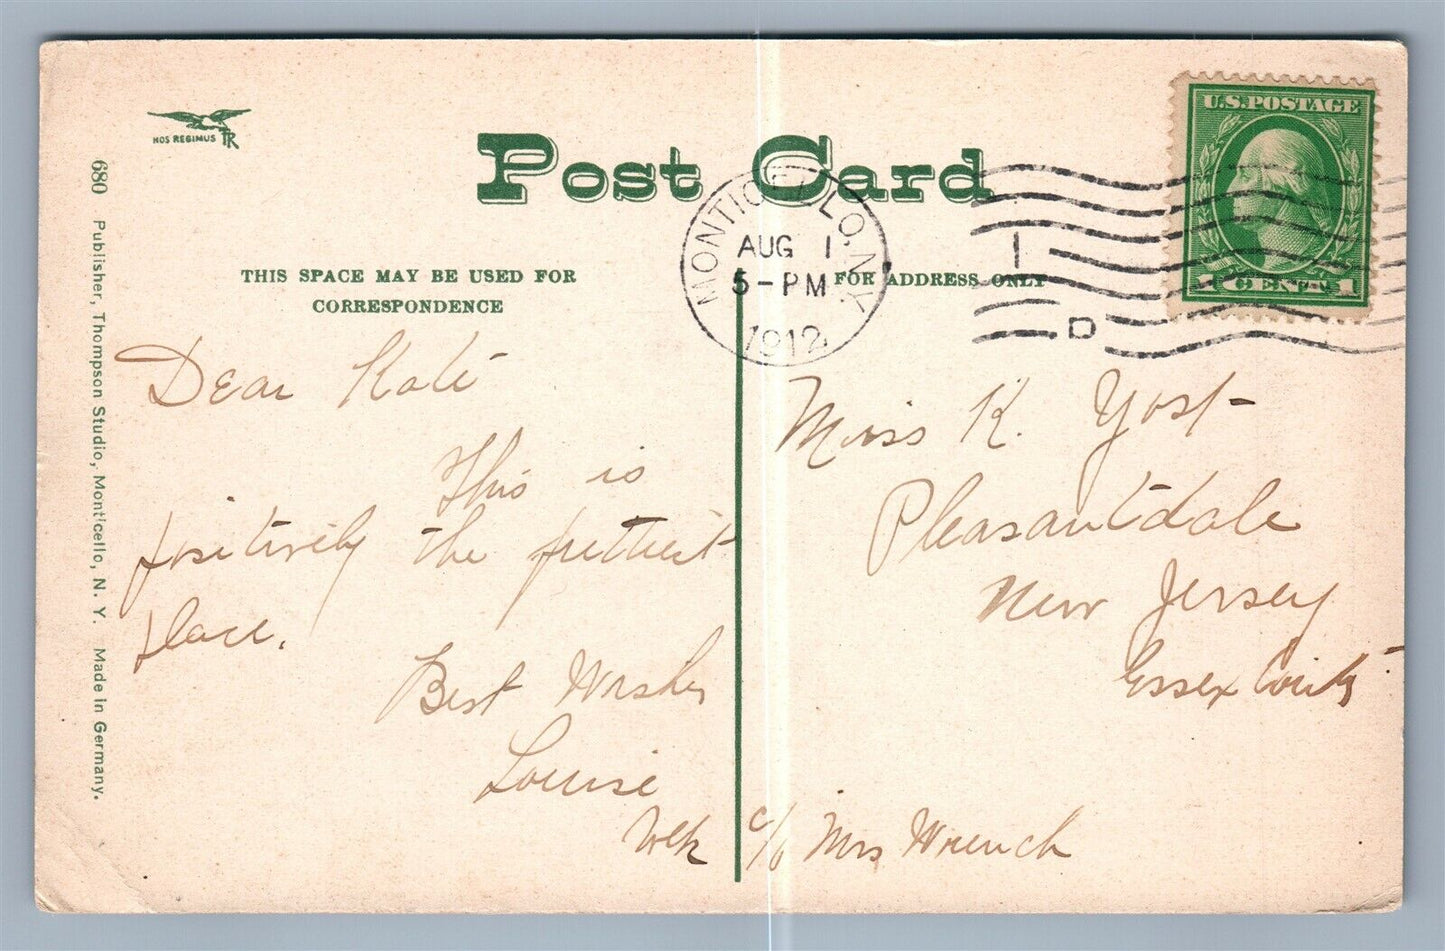 NOS REGIMUS TR
Post Card
U.S. POSTAGE
1 CENT 1
MONTICELLO, N.Y.
AUG 1
5-PM
1912
1
D
THIS SPACE MAY BE USED FOR
CORRESPONDENCE
FOR ADDRESS ONLY
680 Publisher, Thompson Studio, Monticello, N. Y. Made in Germany.
Dear Kate
This is
positively the prettiest
place.
Best Wishes
Louise
Miss K. Yost
Pleasantdale
New Jersey
Essex County
c/o Mrs Wrench